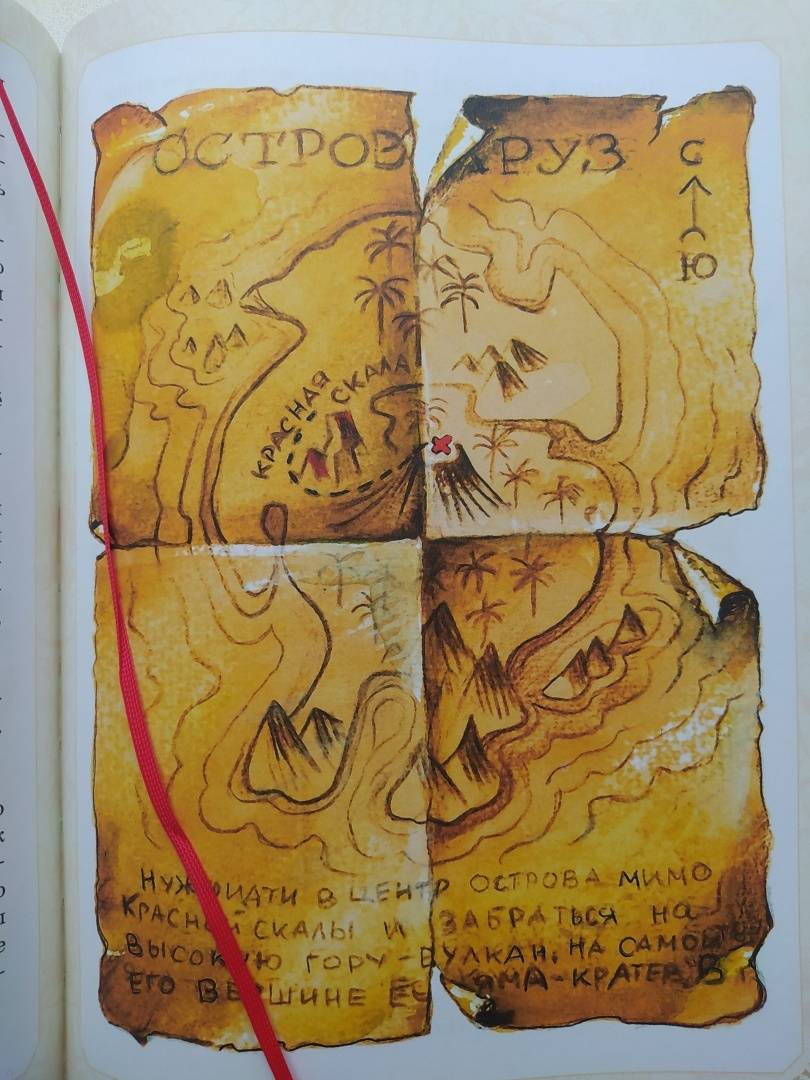 ОСТРОВ РУЗ
С
Ю
КРАСНАЯ СКАЛА
НУЖ ИДТИ В ЦЕНТР ОСТРОВА МИМО
КРАСНОЙ СКАЛЫ И ЗАБРАТЬСЯ НА
ВЫСОКУЮ ГОРУ-ВУЛКАН. НА САМОЙ
ЕГО ВЕРШИНЕ ЕС ЯМА-КРАТЕР. В